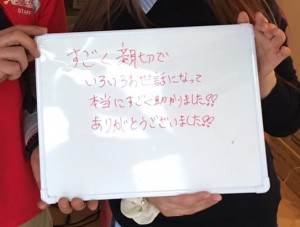 STAFF
すごく親切で
いろいろお世話になって
本当にすごく助かりました!!
ありがとうございました!!